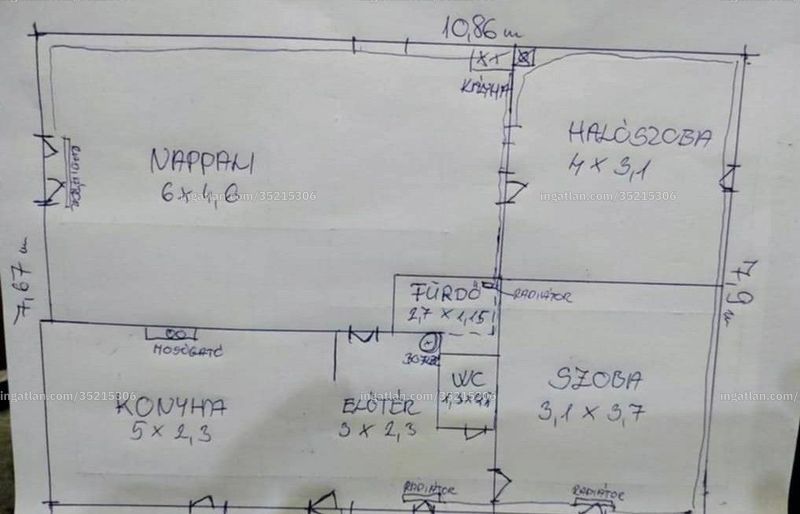 10,86 m
KÁLYHA
NAPPALI
6 x 4,6
HALÓSZOBA
4 x 3,1
ingatlan.com/35215306
ingatlan.com/35215306
ingatlan.com/35215306
7,67 m
7,9 m
FÜRDŐ
2,7 x 1,15
RADIÁTOR
MOSOGATÓ
BOJLER
WC
SZOBA
3,1 x 3,7
KONYHA
5 x 2,3
ELŐTÉR
3 x 2,3
ingatlan.com/35215306
ingatlan.com/35215306
ingatlan.com/35215306
RADIÁTOR
RADIÁTOR